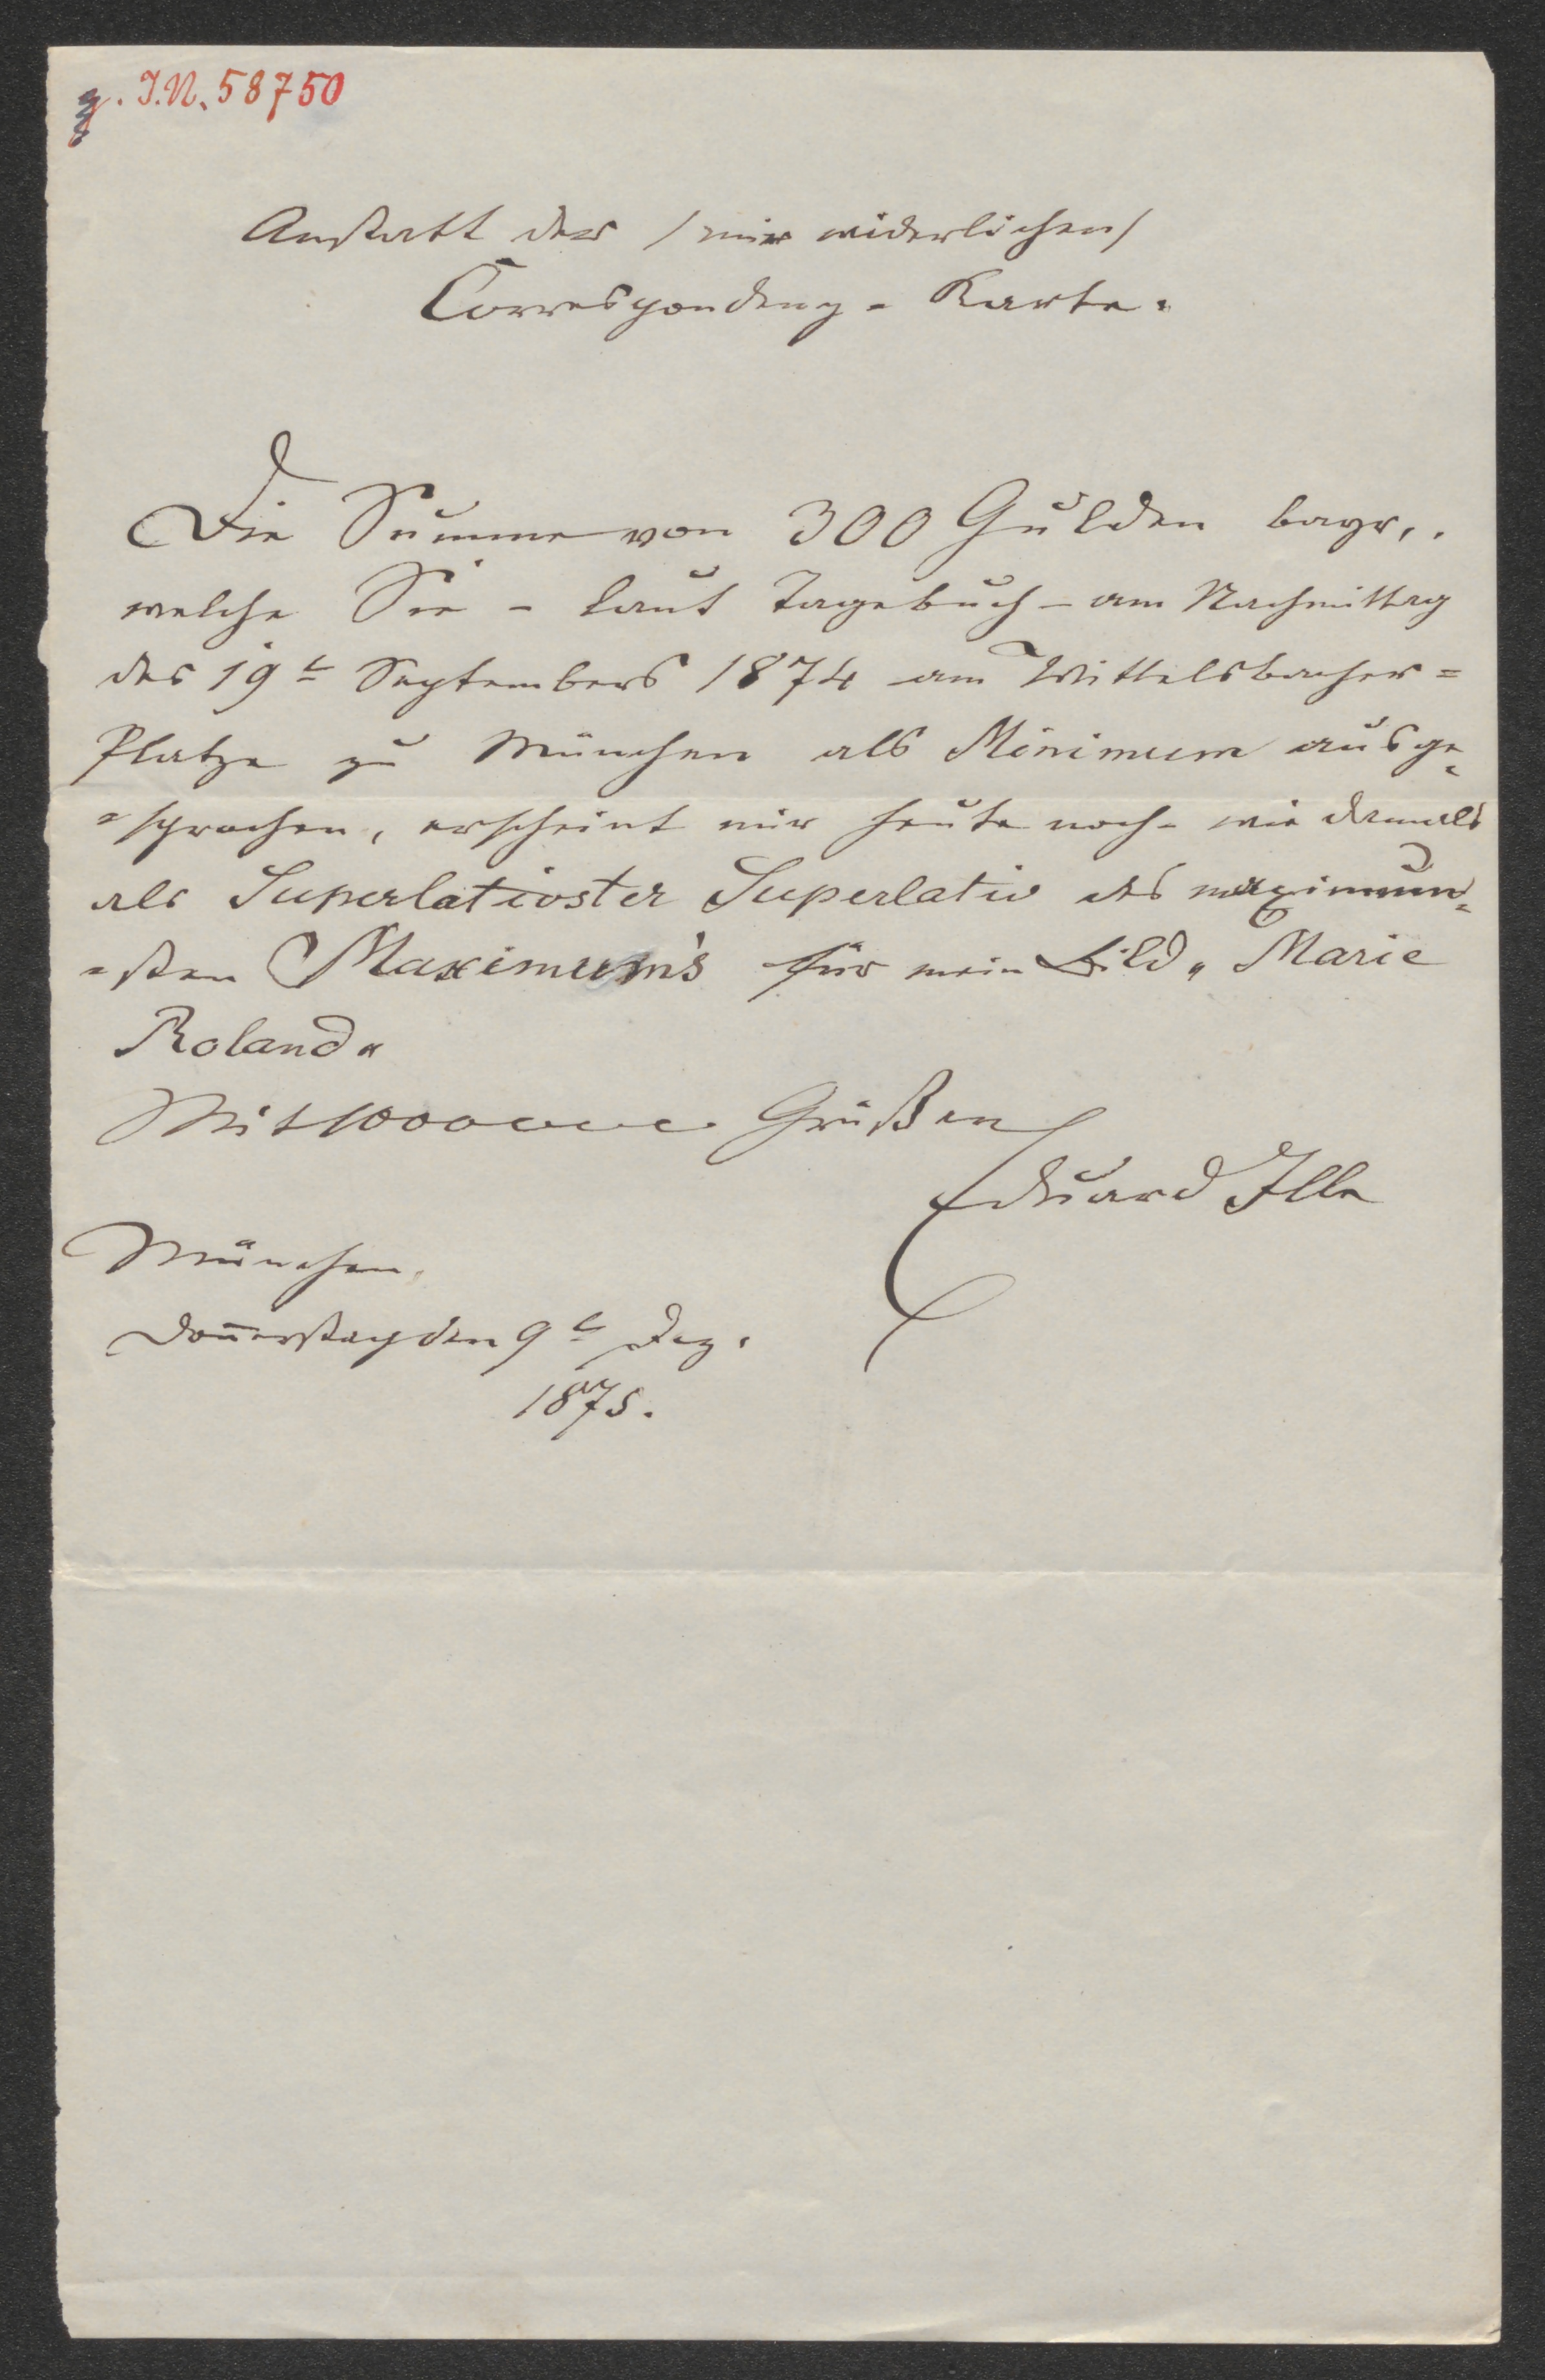 z. I.N. 58750
Anstatt der /mir widerlichen/
Correspondenz-Karte.
Die Summe von 300 Gulden bayr.,
welche Sie - laut Tagebuch - am Nachmittag
des 19t Septembers 1874 am Wittelsbacher=
Platze zu München als Minimum ausge=
=sprochen, erscheint mir heute noch - wie damals
als Superlativster Superlativ des maximum=
=sten Maximum's für mein Bild „Marie
Roland“
Mit 1000000 Grüßen
Eduard Ille
München,
Donnerstag den 9t Dez.
1875.